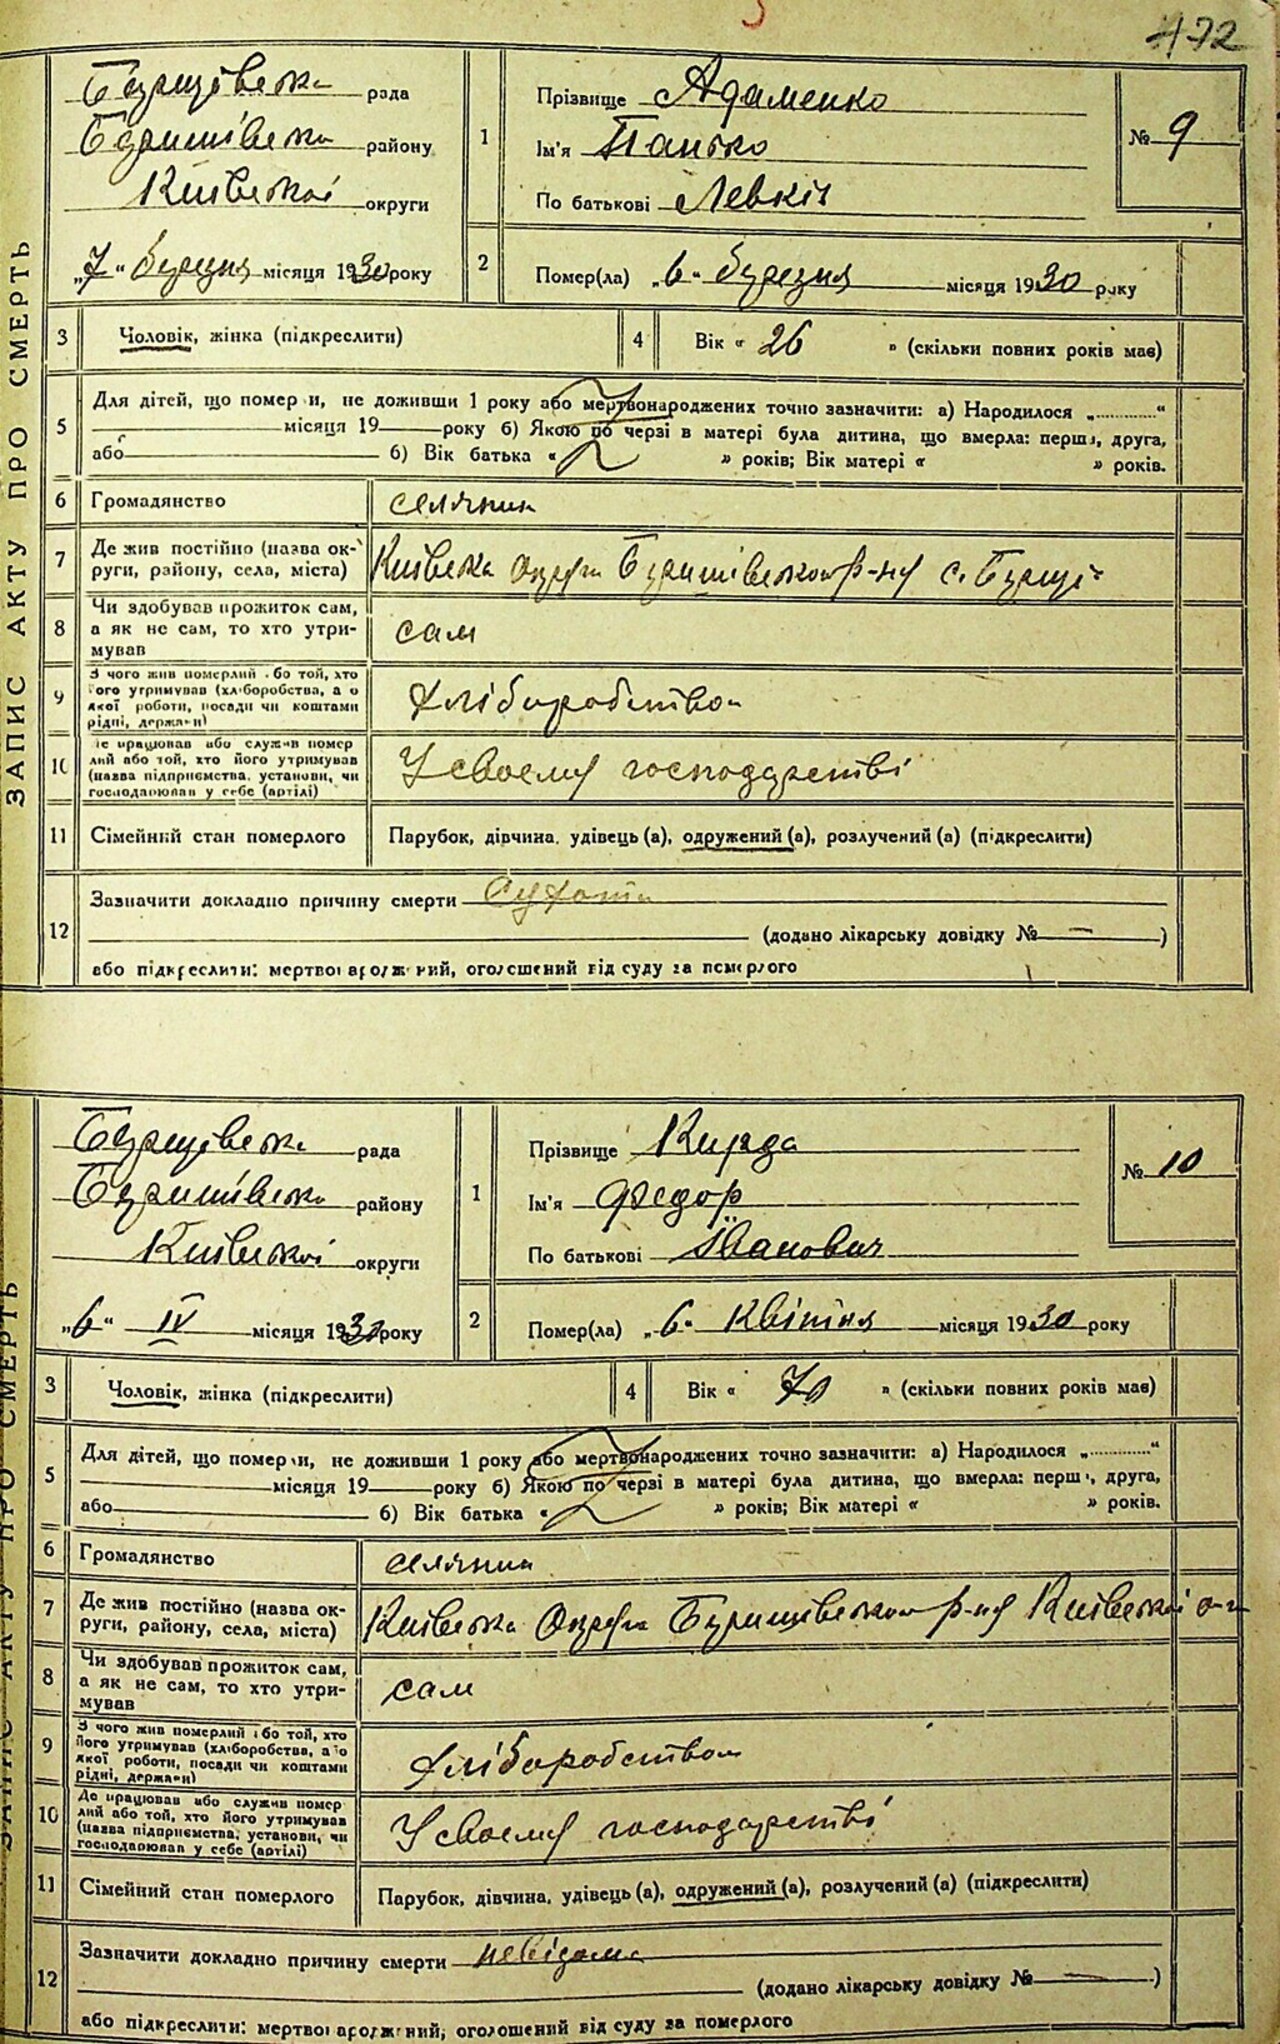 472
ЗАПИС АКТУ ПРО СМЕРТЬ
рада
району
Київської округи
„7“ березня місяця 1930 року
1
Прізвище Адаменко
Ім'я Панько
По батькові Левків
№ 9
2
Помер(ла) „6“ березня місяця 1930 року
3
Чоловік, жінка (підкреслити)
4
Вік « 26 » (скільки повних років має)
5
Для дітей, що померли, не доживши 1 року або мертвонароджених точно зазначити: а) Народилося „............“
місяця 19 року б) Якою по черзі в матері була дитина, що вмерла: перша, друга,
або б) Вік батька « » років; Вік матері « » років.
6
Громадянство
селянин
7
Де жив постійно (назва ок-
руги, району, села, міста)
Київська Округа р-ну с.
8
Чи здобував прожиток сам,
а як не сам, то хто утри-
мував
сам
9
З чого жив померлий або той, хто
його утримував (хліборобства, а о
якої роботи, посади чи коштами
рідні, держави)
Хліборобством
10
Де працював або служив помер
лий або той, хто його утримував
(назва підприємства, установи, чи
господарював у себе (артілі)
У своєму господарстві
11
Сімейний стан померлого
Парубок, дівчина, удівець (а), одружений (а), розлучений (а) (підкреслити)
12
Зазначити докладно причину смерти Сухоти
(додано лікарську довідку № — )
або підкреслити: мертвонароджений, оголошений від суду за померлого
ЗАПИС АКТУ ПРО СМЕРТЬ
рада
району
Київської округи
„6“ IV місяця 1930 року
1
Прізвище Кирда
Ім'я Федор
По батькові Іванович
№ 10
2
Помер(ла) „6“ Квітня місяця 1930 року
3
Чоловік, жінка (підкреслити)
4
Вік « 70 » (скільки повних років має)
5
Для дітей, що померли, не доживши 1 року або мертвонароджених точно зазначити: а) Народилося „............“
місяця 19 року б) Якою по черзі в матері була дитина, що вмерла: перша, друга,
або б) Вік батька « » років; Вік матері « » років.
6
Громадянство
селянин
7
Де жив постійно (назва ок-
руги, району, села, міста)
Київська Округа р-ну Київської
8
Чи здобував прожиток сам,
а як не сам, то хто утри-
мував
сам
9
З чого жив померлий або той, хто
його утримував (хліборобства, а о
якої роботи, посади чи коштами
рідні, держави)
Хліборобством
10
Де працював або служив помер
лий або той, хто його утримував
(назва підприємства, установи, чи
господарював у себе (артілі)
У своєму господарстві
11
Сімейний стан померлого
Парубок, дівчина, удівець (а), одружений (а), розлучений (а) (підкреслити)
12
Зазначити докладно причину смерти невідома
(додано лікарську довідку № — )
або підкреслити: мертвонароджений, оголошений від суду за померлого